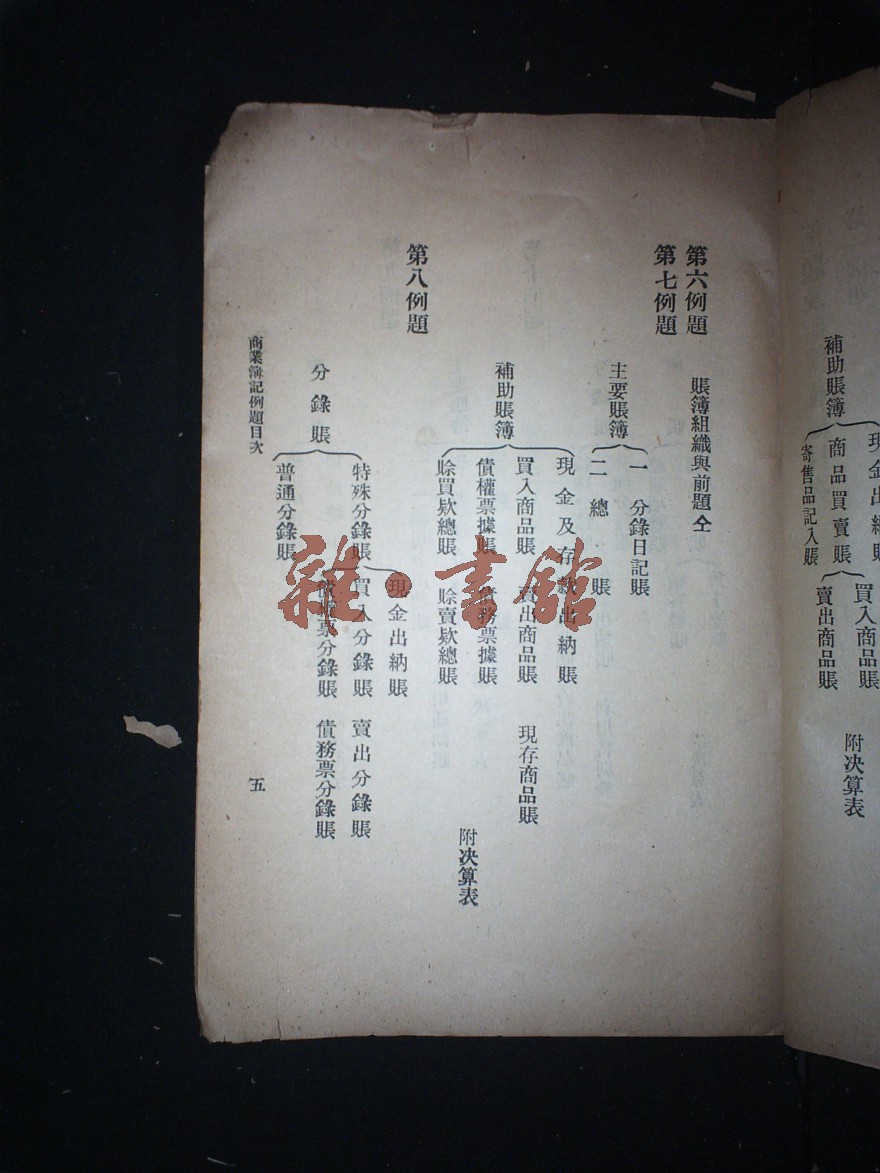 補助賬簿
現金出納
商品買賣賬
寄售品記入賬
買入商品賬
賣出商品賬
附決算表
第六例題 賬簿組織與前題仝
第七例題
主要賬簿
一 分錄日記賬
二 總賬
補助賬簿
現金及存款出納賬
買入商品賬 賣出商品賬 現存商品賬
債權票據賬 債務票據賬
賒買欵總賬 賒賣欵總賬
附決算表
第八例題
分錄賬
特殊分錄賬
現金出納賬
買入分錄賬 賣出分錄賬
債權票分錄賬 債務票分錄賬
普通分錄賬
商業簿記例題目次
五
雜·書館